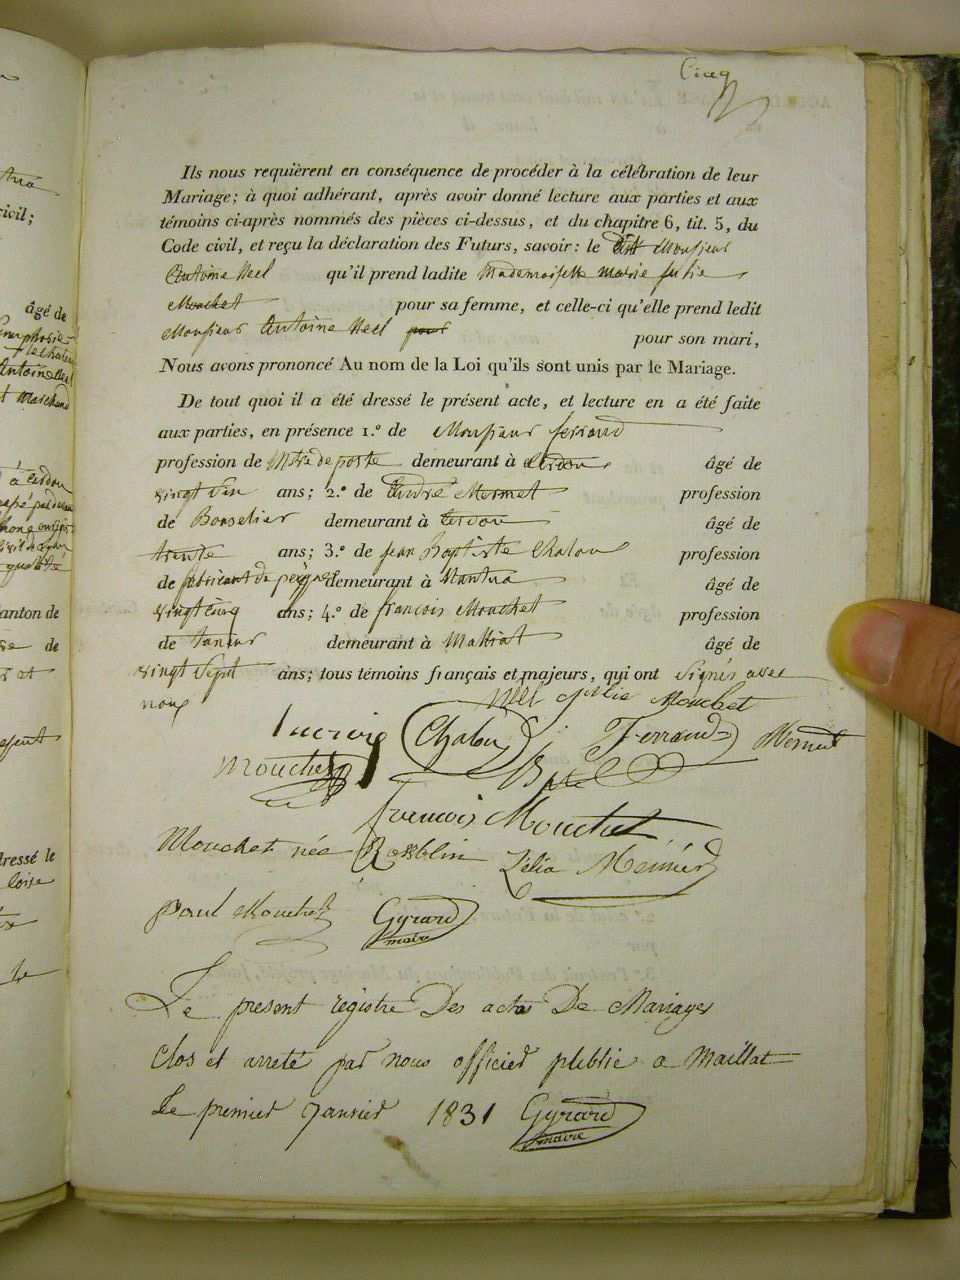 Cinq
Ils nous requièrent en conséquence de procéder à la célébration de leur
Mariage; à quoi adhérant, après avoir donné lecture aux parties et aux
témoins ci-après nommés des pièces ci-dessus, et du chapitre 6, tit. 5, du
Code civil, et reçu la déclaration des Futurs, savoir: le Monsieur
Antoine Neel qu'il prend ladite Mademoiselle Marie Julie
Mouchet pour sa femme, et celle-ci qu'elle prend ledit
Monsieur Antoine Neel pour son mari,
Nous avons prononcé Au nom de la Loi qu'ils sont unis par le Mariage.
De tout quoi il a été dressé le présent acte, et lecture en a été faite
aux parties, en présence 1.º de Monsieur ferraud
profession de Mtre de poste demeurant à Cerdon âgé de
vingt ans; 2.º de André Mermet profession
de Bourelier demeurant à Cerdon âgé de
trente ans; 3.º de Jean Baptiste Chalou profession
de fabricant de peignes demeurant à Nantua âgé de
vingt cinq ans; 4.º de françois Mouchet profession
de taneur demeurant à Maillat âgé de
vingt Sept ans; tous témoins français et majeurs, qui ont signés avec
nous
Neel Julie Mouchet
Chalou Ferraud Mermet
Mouchet
françois Mouchet
Mouchet née Rosblin Zélia Meunier
Paul Mouchet Gyrard
maire
Le present registre Des actes De Mariages
Clos et arreté par nous officier publie a Maillat
Le premier Janvier 1831 Gyrard
maire
âgé de
canton de
de
dressé le